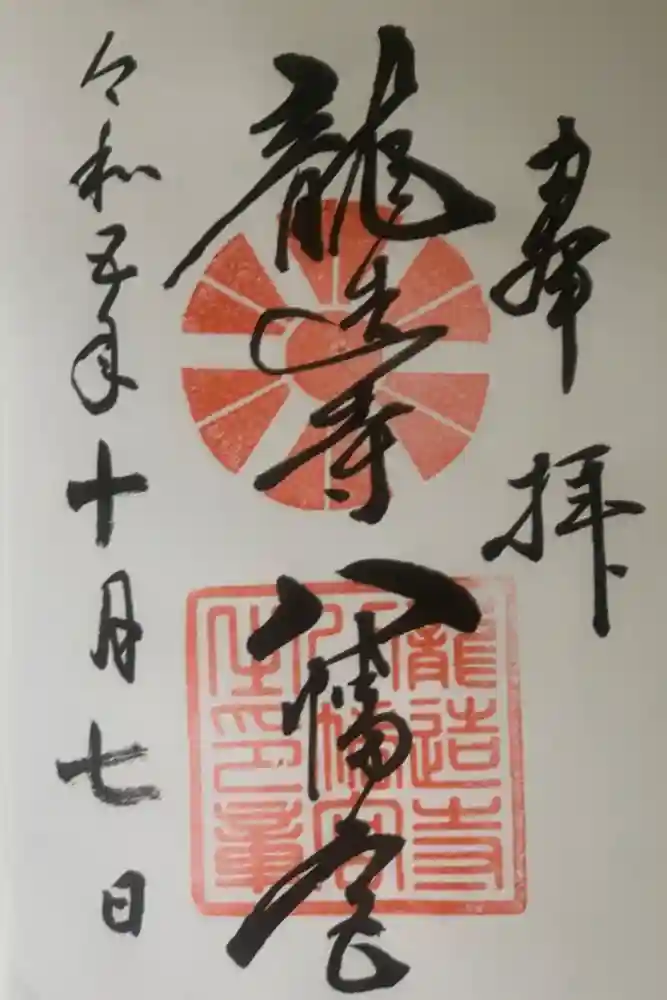 奉拝
龍造寺八幡宮
龍造寺
八幡宮
之印章
令和五年十月七日